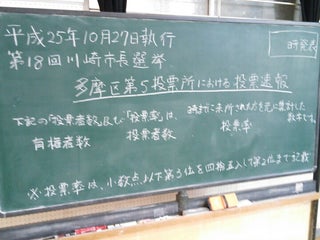 平成25年10月27日執行
時発表
第18回川崎市長選挙
多摩区第5投票所における投票速報
下記の「投票者数」及び「投票率」は、時に来所された方を元に集計した数字です。
有権者数 投票者数 投票率
※投票率は、小数点以下第3位を四捨五入して第2位まで記載